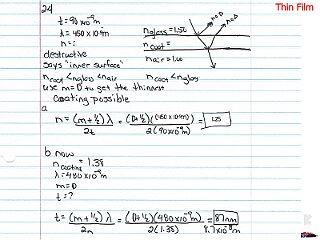 Thin Film
24
t = 90 x10⁻⁹m
λ = 450 x 10⁻⁹m
n = ?
destructive
says "inner surface"
n glass = 1.50
n coat =
n air = 1.00
n coat < n glass < n air
n coat < n glass
use m=0 to get the thinness
coating possible
a
n = (m+½)λ / 2t = (0+½)(450 x10⁻⁹m) / 2(90 x10⁻⁹m) = 1.25
b now
n coating = 1.38
λ = 480 x10⁻⁹m
m = 0
t = ?
t = (m+½)λ / 2n = (0+½)(480 x10⁻⁹m) / 2(1.38) = 87nm
8.7 x10⁻⁸m